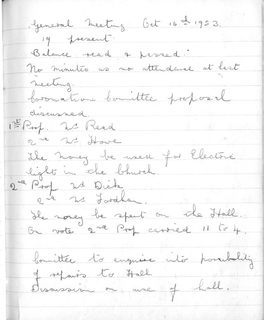 General Meeting Oct 16th 1953.
19 present.
Balance read & passed.
No minutes as no attendance at last
meeting
Coronation Committee proposal
discussed
1st Prop. Mr Read
2nd Mr Howe
The money be used for Electric
light in the Church
2nd Prop Mr Dick
2nd Mr Fordham.
The money be spent on the Hall.
On vote 2nd Prop carried 11 to 4.
Committee to enquire into possibility
of repairs to Hall
Discussion on use of hall.